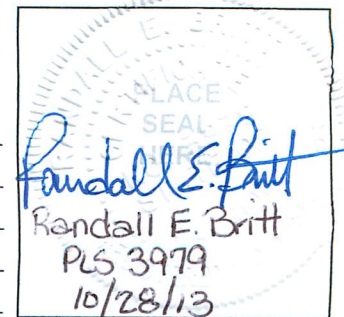 RANDALL E. BR
PLACE
SEAL
HERE
Randall E. Britt
Randall E. Britt
PLS 3979
10/28/13